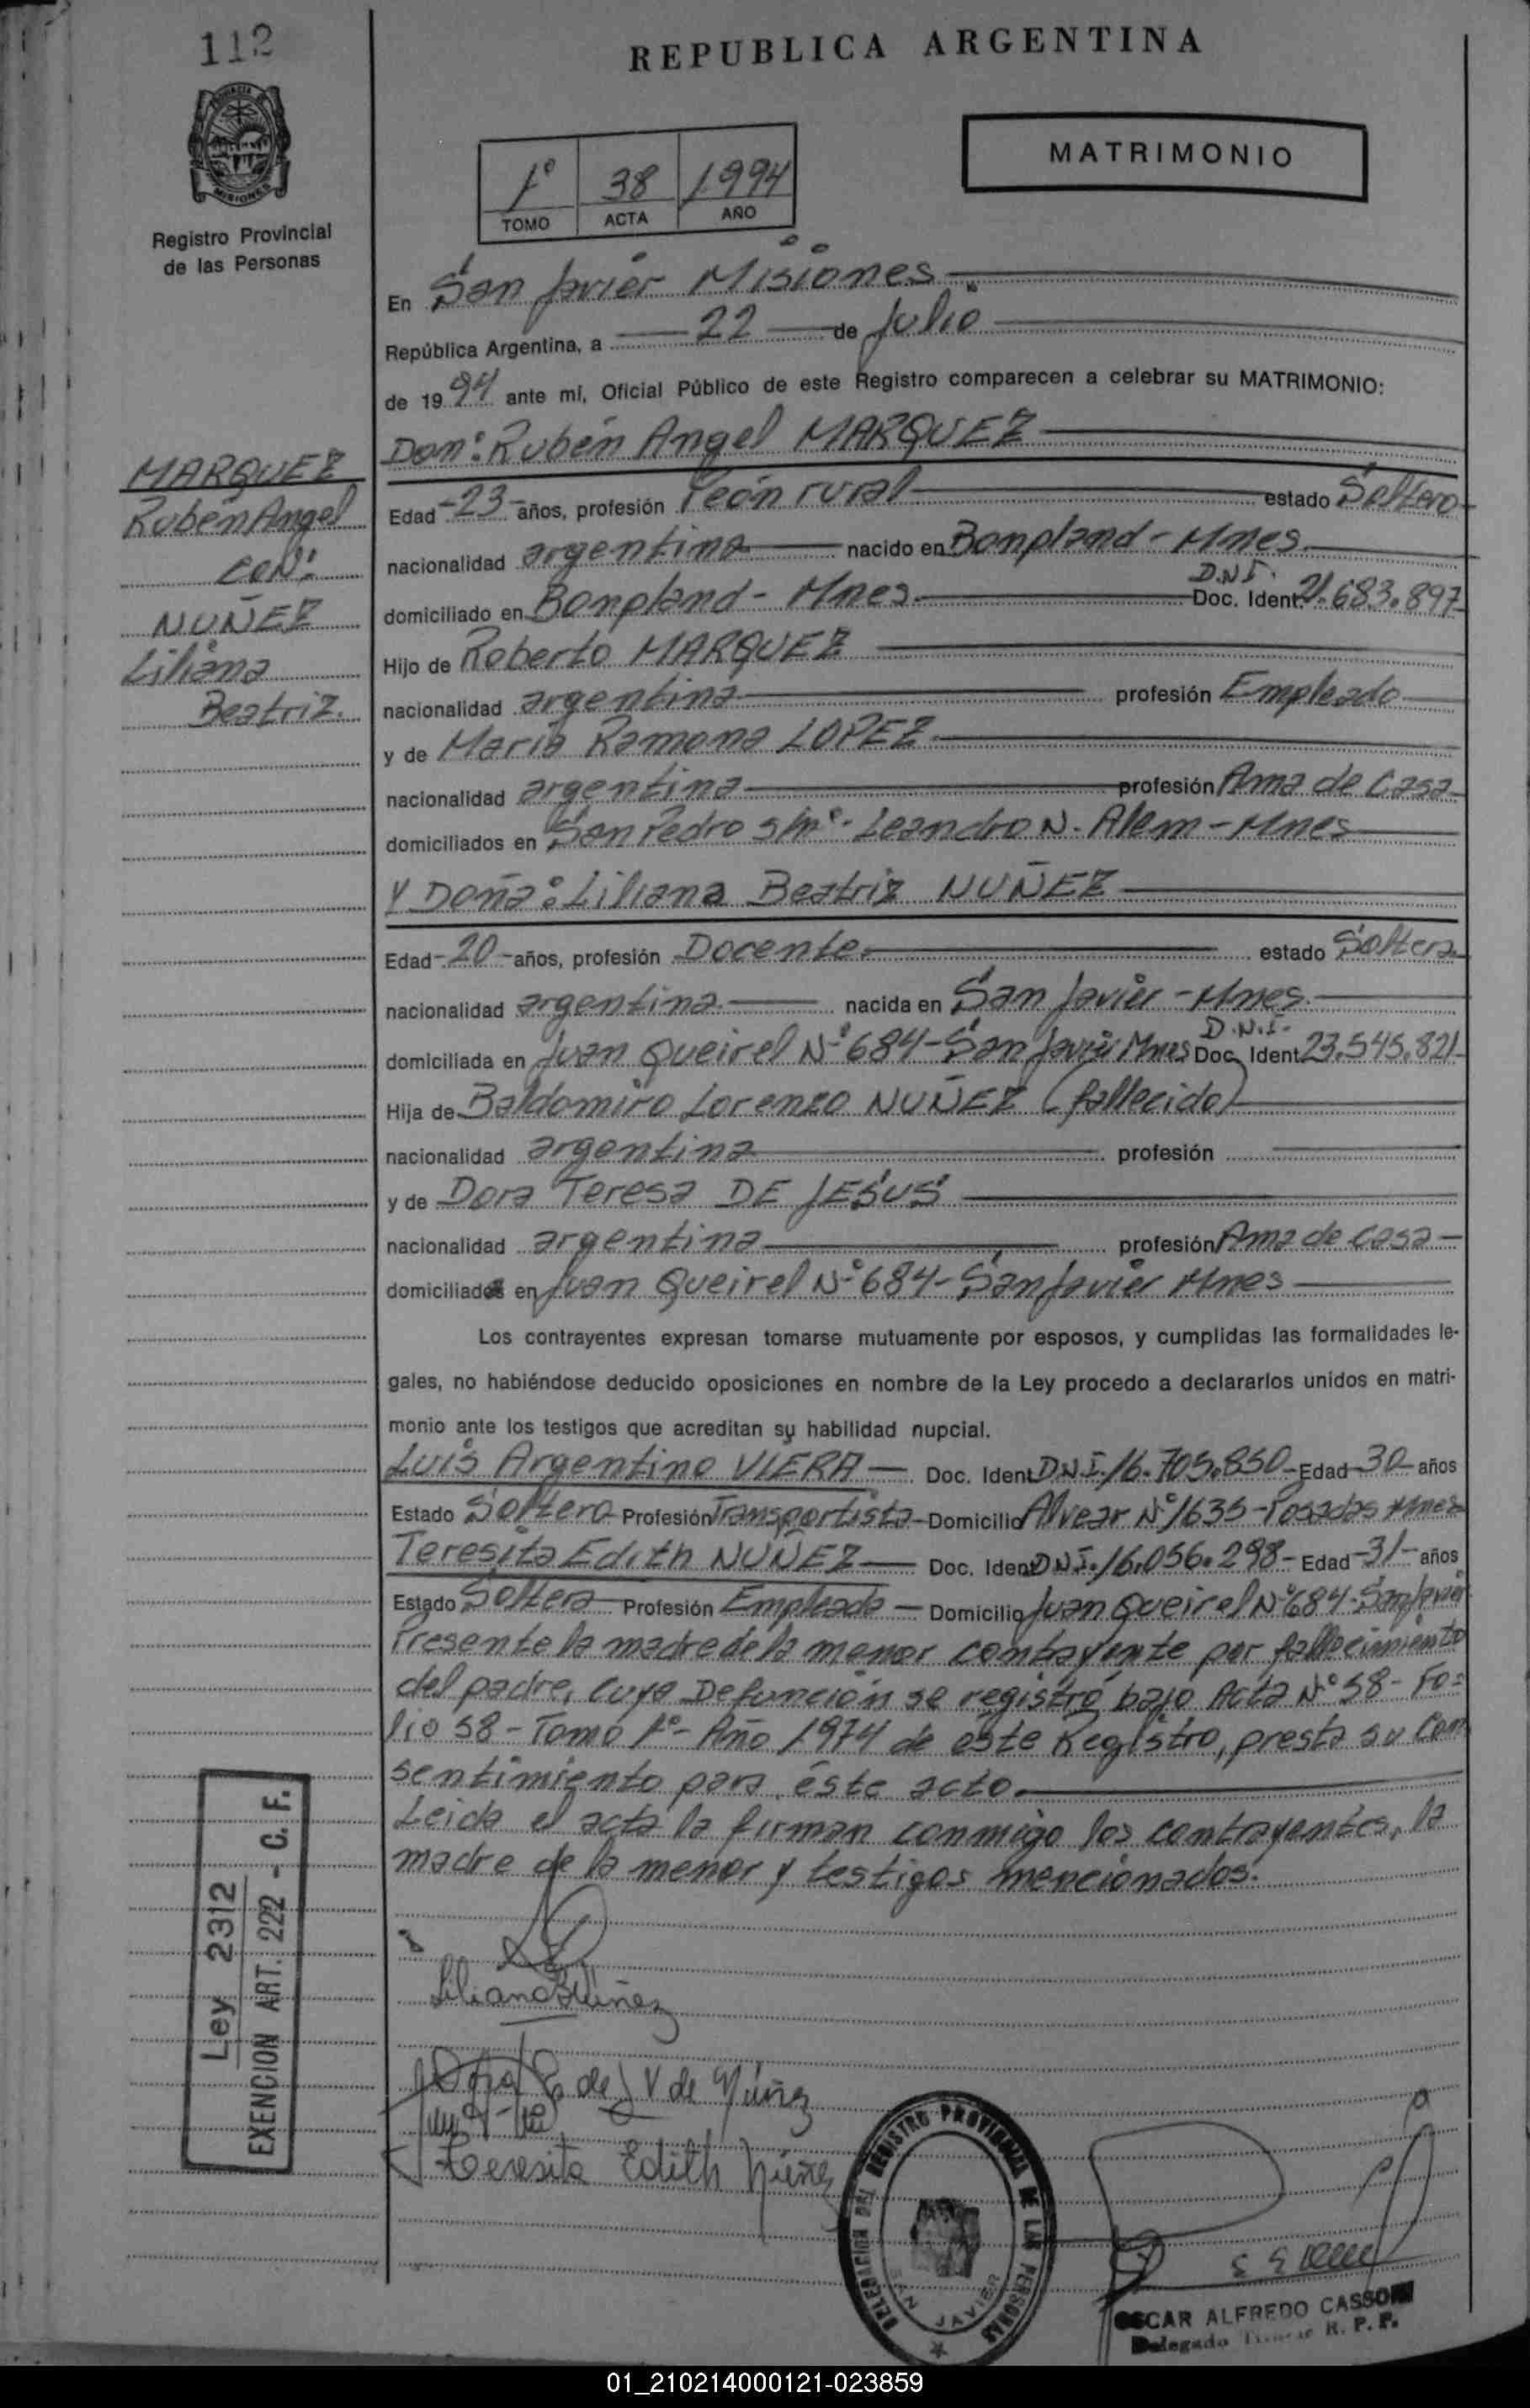 112
REPUBLICA ARGENTINA
PROVINCIA DE MISIONES
Registro Provincial
de las Personas
MATRIMONIO
1º 38 1994
TOMO ACTA AÑO
En San Javier Misiones
República Argentina, a 22 de Julio
de 1994 ante mi, Oficial Público de este Registro comparecen a celebrar su MATRIMONIO:
Don: Rubén Angel MARQUEZ
MARQUEZ
Rubén Angel
CON:
NUÑEZ
Liliana
Beatriz.
Edad -23- años, profesión Peón rural estado Soltero
nacionalidad argentina nacido en Bonpland - Mnes.
domiciliado en Bonpland - Mnes. D.N.I. Doc. Ident. 21.683.897
Hijo de Roberto MARQUEZ
nacionalidad argentina profesión Empleado
y de María Ramona LOPEZ
nacionalidad argentina profesión Ama de Casa
domiciliados en San Pedro s/nº - Leandro N. Alem - Mnes
Y Doña: Liliana Beatriz NUÑEZ
Edad -20- años, profesión Docente estado Soltera
nacionalidad argentina nacida en San Javier - Mnes.
domiciliada en Juan Queirel Nº 684 - San Javier Mnes D.N.I. Doc. Ident. 23.545.821
Hija de Baldomiro Lorenzo NUÑEZ (fallecido)
nacionalidad argentina profesión
y de Dora Teresa DE JESUS
nacionalidad argentina profesión Ama de casa
domiciliada en Juan Queirel Nº 684 - San Javier Mnes
Los contrayentes expresan tomarse mutuamente por esposos, y cumplidas las formalidades le-
gales, no habiéndose deducido oposiciones en nombre de la Ley procedo a declararlos unidos en matri-
monio ante los testigos que acreditan su habilidad nupcial.
Luis Argentino VIERA Doc. Ident. D.N.I. 16.705.850 - Edad -30- años
Estado Soltero Profesión Transportista Domicilio Alvear Nº 1635 - Posadas Mnes
Teresita Edith NUÑEZ Doc. Ident. D.N.I. 16.056.298 - Edad -31- años
Estado Soltera Profesión Empleada Domicilio Juan Queirel Nº 684 - San Javier
Presente la madre de la menor contrayente por fallecimiento
del padre, cuya Defunción se registró bajo Acta Nº 58 - Fo-
lio 58 - Tomo 1º - Año 1974 de este Registro, presta su con
sentimiento para éste acto.
Leida el acta la firman conmigo los contrayentes, la
madre de la menor y testigos mencionados.
Ley 2312
EXENCION ART. 222 - C. F.
Liliana B Núñez
Dora T. de J V de Núñez
Teresita Edith Núñez
DELEGACION DEL REGISTRO PROVINCIAL DE LAS PERSONAS
SAN JAVIER
OSCAR ALFREDO CASSONI
Delegado Titular R. P. P.
01_210214000121-023859